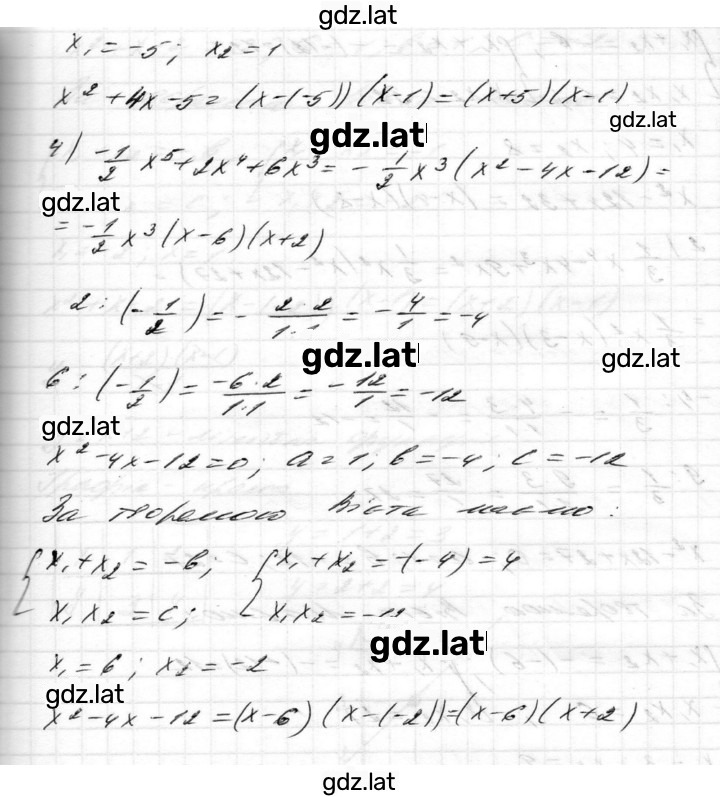 gdz.lat
x₁ = -5; x₂ = 1
x² + 4x - 5 = (x-(-5)) (x-1) = (x+5)(x-1)
gdz.lat
gdz.lat
4) -1/2 x⁵ + 2x⁴ + 6x³ = - 1/2 x³ (x² - 4x - 12) =
gdz.lat
= -1/2 x³ (x-6)(x+2)
2 : (-1/2) = - 2·2/1·1 = - 4/1 = -4
gdz.lat
gdz.lat
6 : (-1/2) = -6·2/1·1 = - 12/1 = -12
gdz.lat
x² - 4x - 12 = 0; a = 1; b = -4; c = -12
За теоремою Вієта маємо:
{ x₁ + x₂ = -b; { x₁ + x₂ = -(-4) = 4
x₁ x₂ = c; x₁ x₂ = -12
gdz.lat
x₁ = 6; x₂ = -2
gdz.lat
x² - 4x - 12 = (x-6) (x-(-2)) = (x-6)(x+2)
gdz.lat